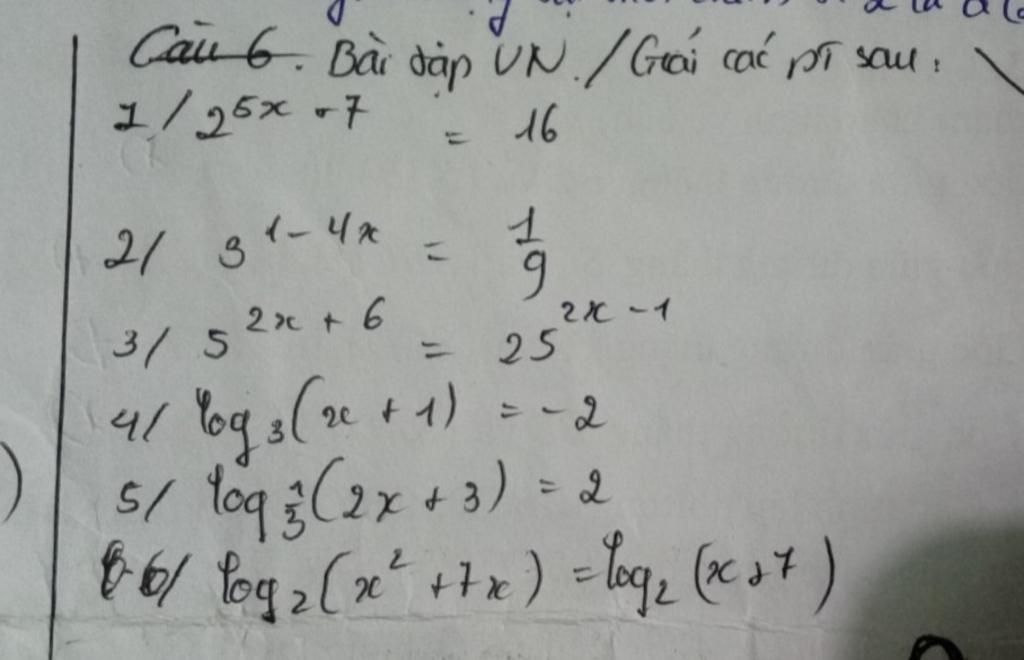 Câu 6. Bài tập VN. / Giải các pt sau:
1/ 2^{5x+7} = 16
2/ 3^{1-4x} = \frac{1}{9}
3/ 5^{2x+6} = 25^{2x-1}
4/ log_3(x+1) = -2
5/ log_{\frac{1}{3}}(2x+3) = 2
6/ log_2(x^2+7x) = log_2(x+7)